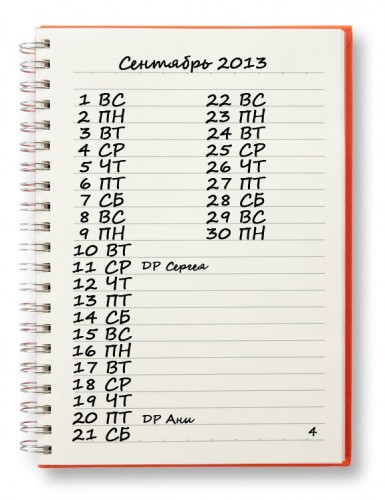 Сентябрь 2013
1 ВС
2 ПН
3 ВТ
4 СР
5 ЧТ
6 ПТ
7 СБ
8 ВС
9 ПН
10 ВТ
11 СР DP Сергея
12 ЧТ
13 ПТ
14 СБ
15 ВС
16 ПН
17 ВТ
18 СР
19 ЧТ
20 ПТ DP Ани
21 СБ
22 ВС
23 ПН
24 ВТ
25 СР
26 ЧТ
27 ПТ
28 СБ
29 ВС
30 ПН
4